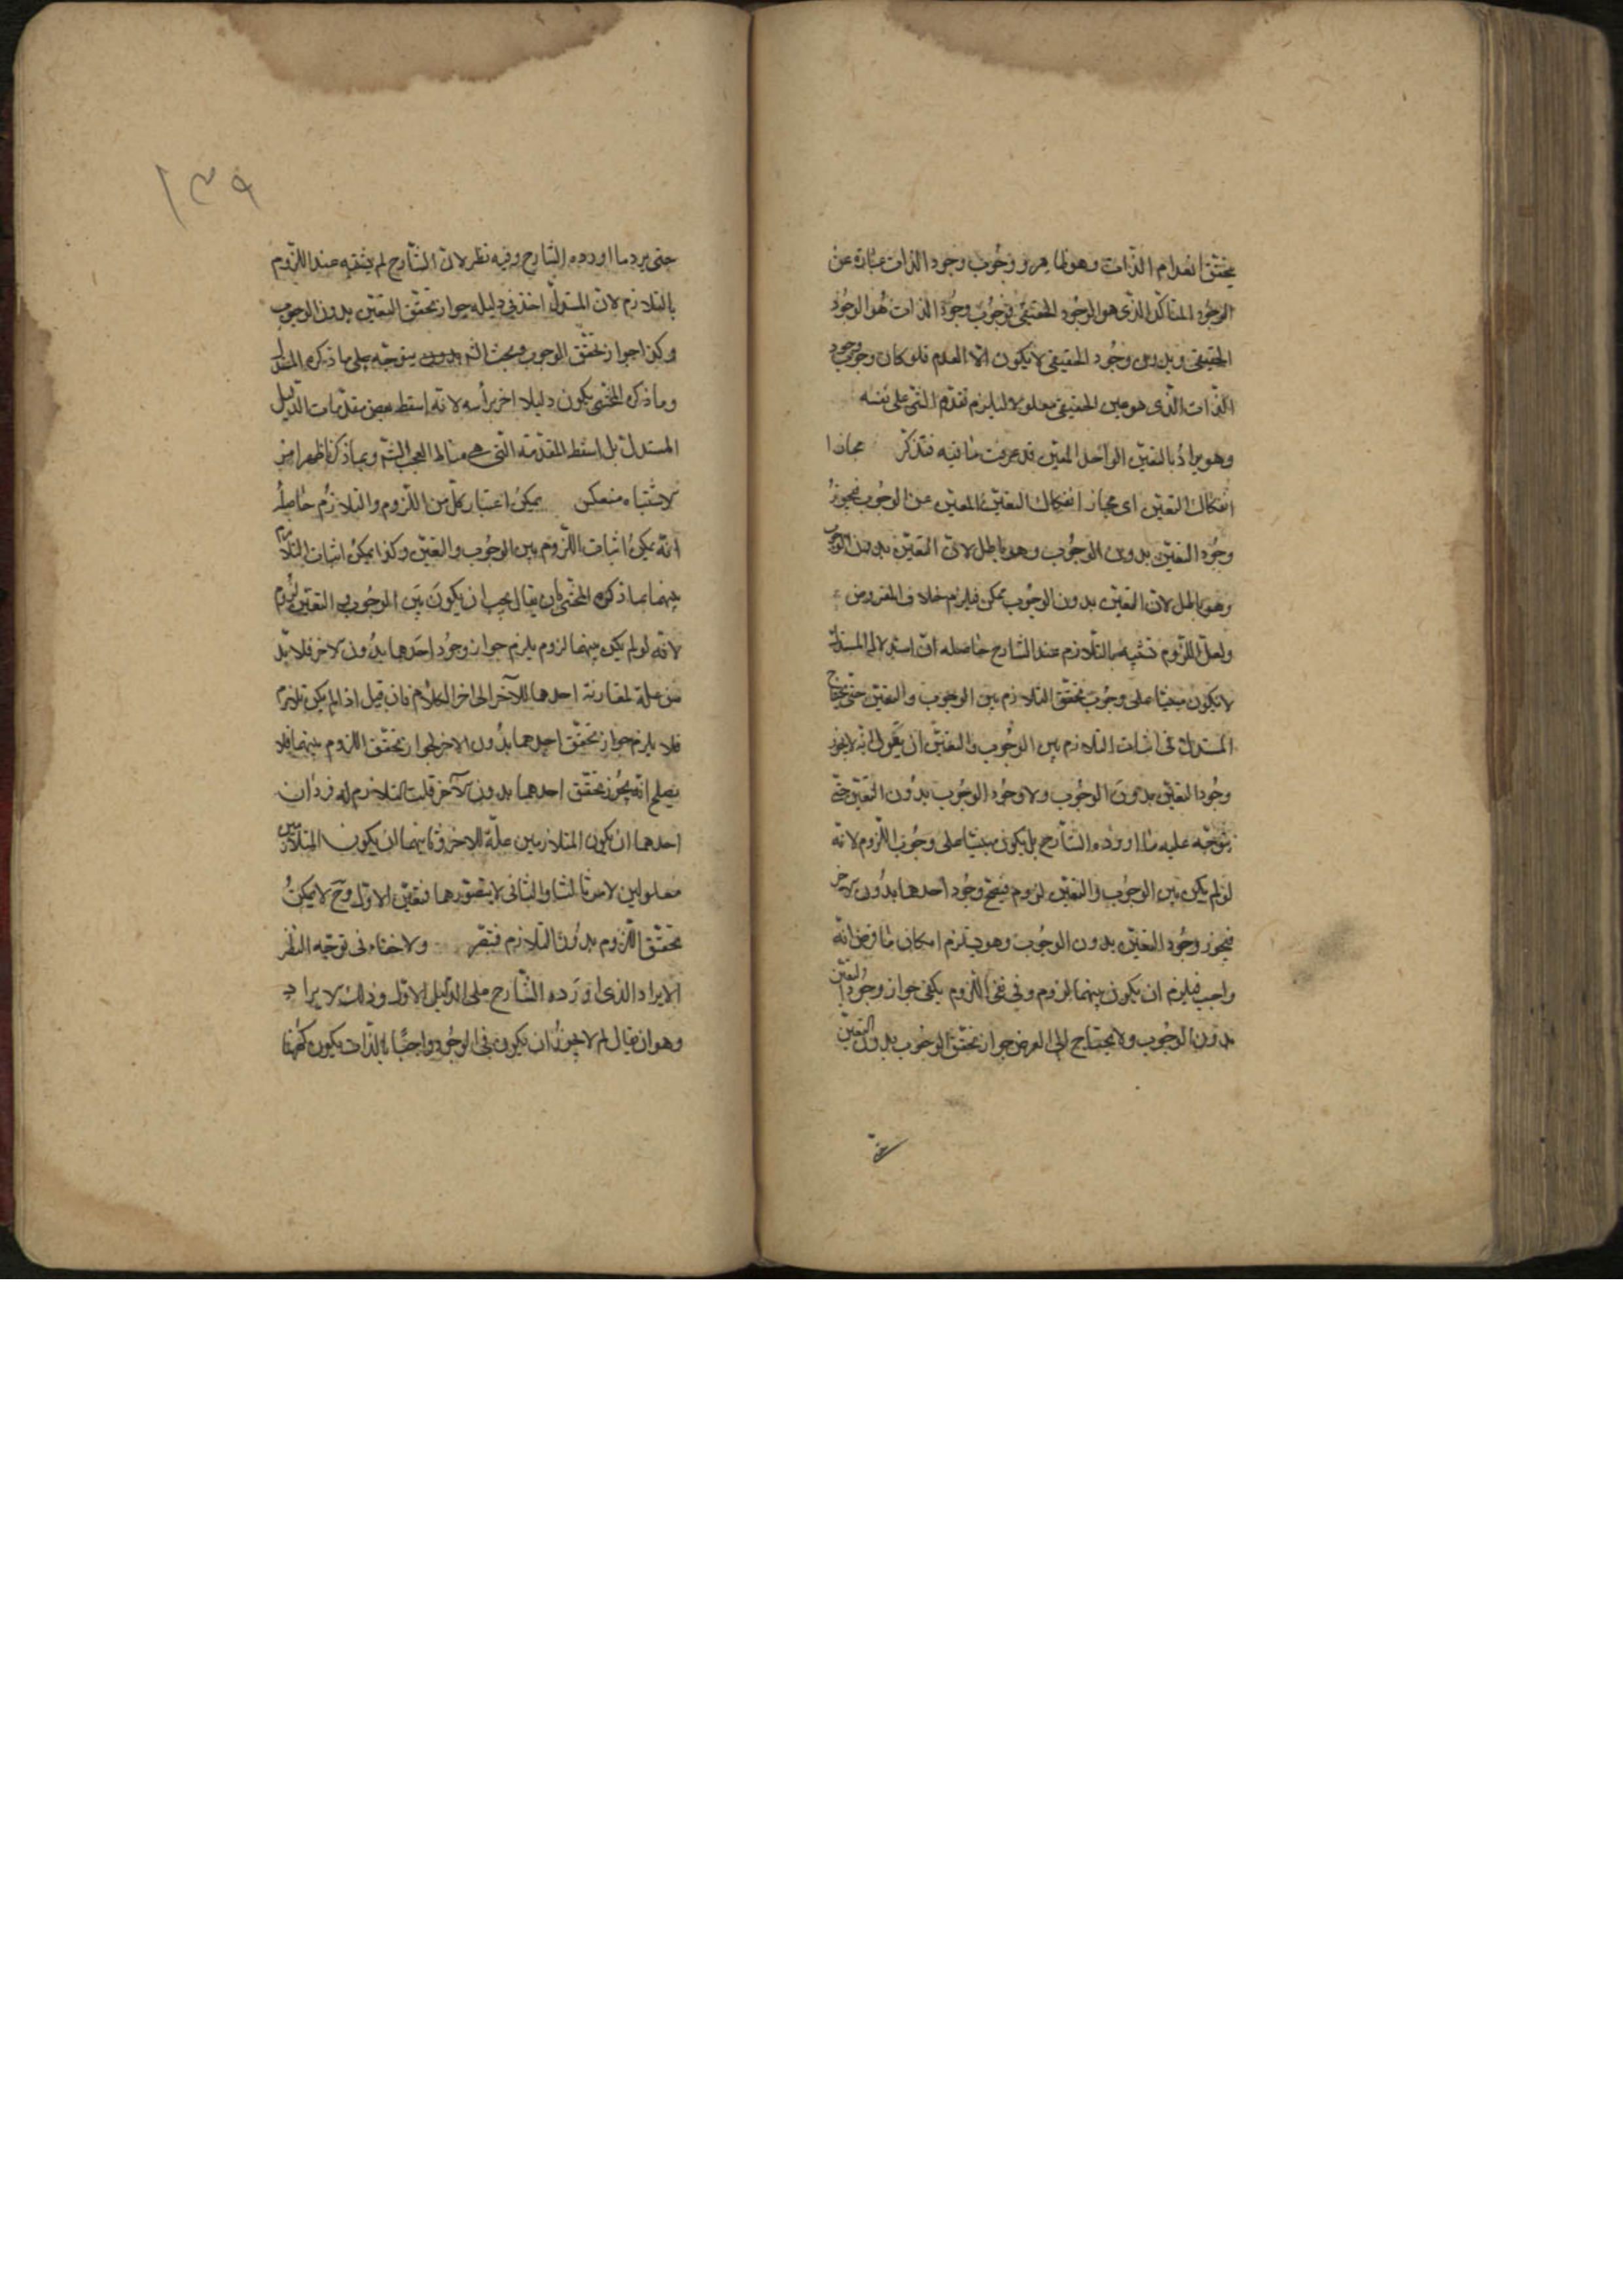 يتحقق انعدام الذات وهو ظاهر ووجوب وجود الذات عبارة عن
الوجود المتاكد الذى هو الوجود الحقيقى فوجوب وجود الذات هو الوجود
الحقيقى وبدون وجود الحقيقى لا يكون الا العدم فلو كان وجوب وجود
الذات الذى هو عين الحقيقى معلولا لها يلزم تقدم الشى على نفسه
وهو يراد بالتعين الواحد المعين قد عرفت ما فيه فتذكر
انفكاك التعين اى مجاز انفكاك التعين المعين عن الوجوب فيجوز
وجود التعين بدون الوجوب وهو باطل لان التعين بدون الوجوب
وهو باطل لان التعين بدون الوجوب ممكن فيلزم خلاف المفروض
ولعل اللزوم تشبه بالتلازم عند الشارح حاصله ان استدلال المستدل
لا يكون مبنيا على وجوب تحقق التلازم بين الوجوب والتعين حتى يحتاج
المستدل فى اثبات التلازم بين الوجوب والتعين ان يقول انه لا يجوز
وجود التعين بدون الوجوب ولا وجود الوجوب بدون التعين حتى
يتوجه عليه ما اورده الشارح بل يكون مبنيا على وجوب اللزوم لانه
لو لم يكن بين الوجوب والتعين لزوم فيصح وجود احدهما بدون الاخر
فيجوز وجود التعين بدون الوجوب وهو يستلزم امكان ما فرض انه
واجب فيلزم ان يكون بينهما لزوم وفى نفى اللزوم يكفى جواز وجود التعين
بدون الوجوب ولا يحتاج الى العرض جواز تحقق الوجوب بدون التعين
١٣٩
حتى يرد ما اورده الشارح وفيه نظر لان الشارح لم يشتبه عند اللزوم
بالتلازم لان المستدل اخذ فى دليله جواز تحقق التعين بدون الوجوب
وكذا جواز تحقق الوجوب وبحث الشم بدون يتوجه على ما ذكره المستدل
وما ذكره المحشى يكون دليلا اخر برأسه لانه اسقط بعض مقدمات الدليل
المستدل بل اسقط المقدمة التى هى مناط البحث الشم وبما ذكرنا ظهر امر
الاشتباه منعكس يمكن اعتبار كل من اللزوم والتلازم حاصله
انه يمكن اثبات اللزوم بين الوجوب والتعين وكذا يمكن اثبات التلازم
بينهما بما ذكره المحشى بان يقال يجب ان يكون بين الوجوب والتعين لزوم
لانه لو لم يكن بينهما لزوم يلزم جواز وجود احدهما بدون الاخر فلا بد
من علة لمقارنة احدهما للآخر الى اخر الكلام فان قيل اذا لم يكن تلازم
فلا يلزم جواز تحقق احدهما بدون الاخر لجواز تحقق اللزوم بينهما فلا
يصلح انه يجوز تحقق احدهما بدون الآخر قلت التلازم له فردان
احدهما ان يكون المتلازمين علة للاخر وثانيهما ان يكون المتلازمين
معلولين لامر ثالث والثانى لا يتصور هما فتعين الاول وح لا يمكن
تحقق اللزوم بدون التلازم فتقر ولا خفاء فى توجه النظر
الايراد الذى اورده الشارح على الدليل الاول وذلك الايراد
وهو ان يقال لم لا يجوز ان يكون فى الوجود واجبا بالذات يكون كنهها